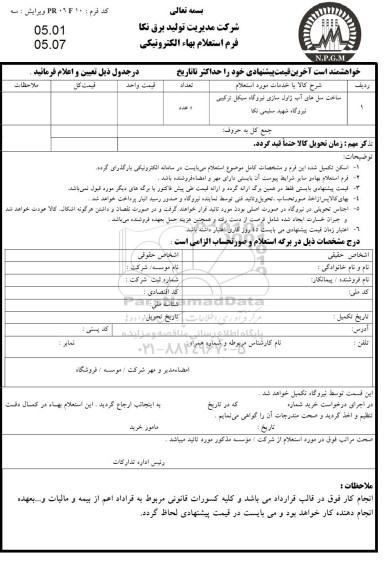 بسمه تعالی
کد فرم : PR ۰۶ F ۱۰ ویرایش : سه
شرکت مدیریت تولید برق نکا
فرم استعلام بهاء الکترونیکی
05.01
05.07
N.P.G.M
خواهشمند است آخرین قیمت پیشنهادی خود را حداکثر تا تاریخ درجدول ذیل تعیین و اعلام فرمائید .
ردیف شرح کالا یا خدمات مورد استعلام تعداد قیمت واحد قیمت کل ملاحظات
۱ ساخت سل های آب ژاول سازی نیروگاه سیکل ترکیبی نیروگاه شهید سلیمی نکا عدد
جمع کل به حروف:
تذکر مهم : زمان تحویل کالا حتماً قید گردد.
توضیحات:
۱- اسکن تکمیل شده این فرم و مشخصات کامل موضوع استعلام می‌بایست در سامانه الکترونیکی بارگذاری گردد.
۲- فرم استعلام بهاء و سایر شرایط پیوست آن بایستی دارای مهر و امضاء فروشنده باشد .
۳- قیمت پیشنهادی بایستی فقط در همین برگه ارائه گردد و ارائه قیمت طی پیش فاکتور یا برگه های دیگر مورد قبول نمی‌باشد.
۴- بهای کالا پس از اخذ صورتحساب ، تحویل و تائید فنی توسط نماینده نیروگاه و صدور رسید انبار پرداخت خواهد شد .
۵- اجناس تحویلی در نیروگاه در صورت اصلی بودن مورد تائید قرار خواهند گرفت و در صورت نقصان و داشتن هرگونه اشکال، کالا عودت خواهد شد و جبران خسارت ایجاد شده شامل فرصت از دست رفته و همچنین هزینه حمل بعهده فروشنده می‌باشد .
۶- اعتبار زمان قیمت پیشنهادی می بایست ۴۵ روز کاری اعتبار داشته باشد
درج مشخصات ذیل در برگه استعلام و صورتحساب الزامی است :
اشخاص حقیقی اشخاص حقوقی
نام و نام خانوادگی : نام موسسه/ شرکت :
نام فروشنده / پیمانکار: شماره ثبت شرکت :
کد ملی: کد اقتصادی :
شناسه ملی
تاریخ تکمیل : تاریخ تحویل:
آدرس: کد پستی :
تلفن : نام کارشناس مربوطه و شماره همراه: نمابر :
ParsNamadData
پایگاه اطلاع رسانی مناقصه و مزایده
۰۲۱-۸۸۳۴۹۶۷۰-۵
امضاء مدیر و مهر شرکت / موسسه / فروشگاه
این قسمت توسط نیروگاه تکمیل خواهد شد .
در اجرای درخواست خرید شماره که در تاریخ به اینجانب ارجاع گردید . این استعلام بهاء در کمال دقت تنظیم و اخذ گردید و صحت مندرجات آن را گواهی می‌نمایم .
تاریخ : مامور خرید
صحت مراتب فوق در مورد استعلام از شرکت / مؤسسه مذکور مورد تائید میباشد .
رئیس اداره تدارکات
ملاحظات :
انجام کار فوق در قالب قرارداد می باشد و کلیه کسورات قانونی مربوط به قرارداد اعم از بیمه و مالیات و...بعهده انجام دهنده کار خواهد بود و می بایست در قیمت پیشنهادی لحاظ گردد.